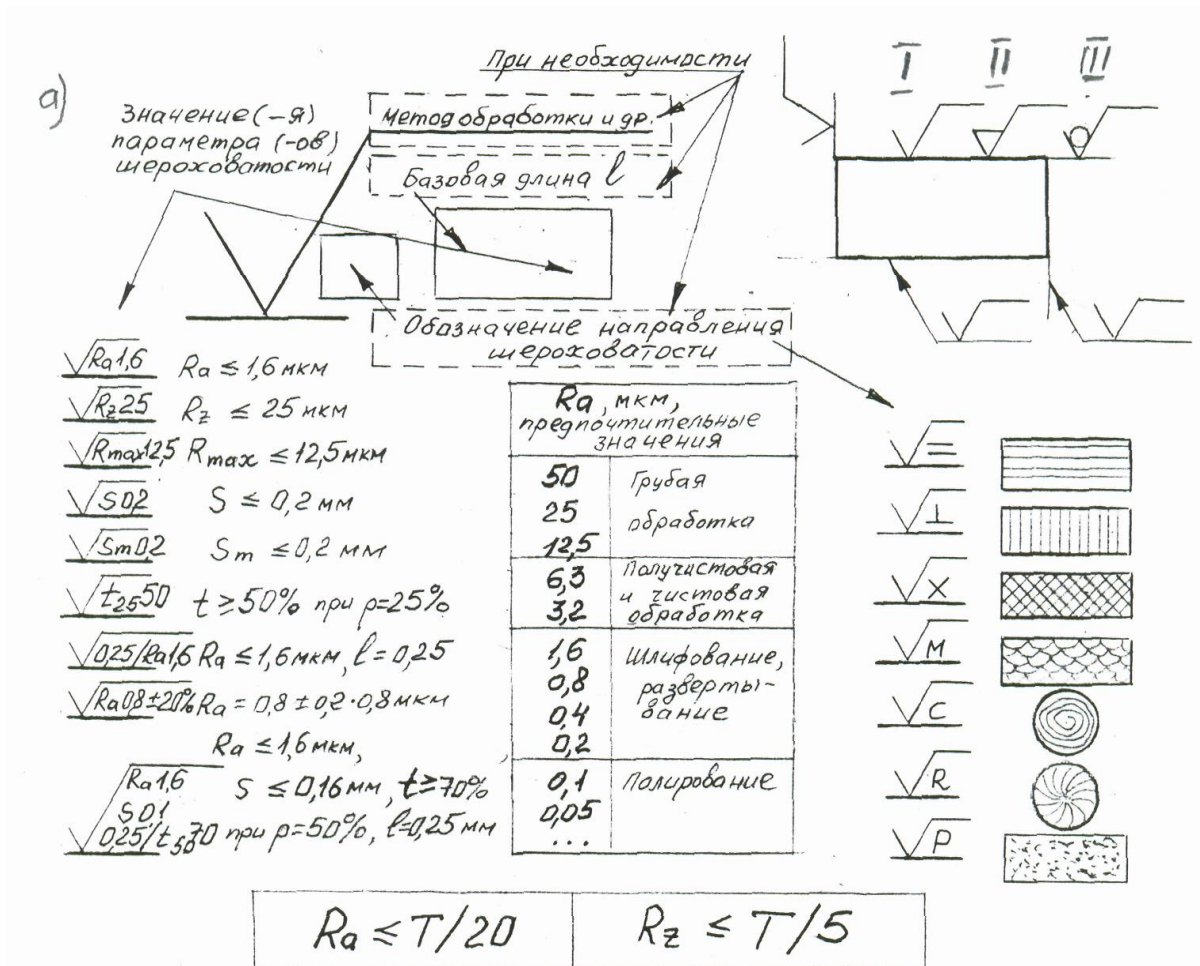 а)
При необходимости
Значение(-я)
параметра (-ов)
шероховатости
Метод обработки и др.
Базовая длина l
Обозначение направления
шероховатости
I II III
Ra1,6 Ra ≤ 1,6 мкм
Rz25 Rz ≤ 25 мкм
Rmax12,5 Rmax ≤ 12,5 мкм
S0,2 S ≤ 0,2 мм
Sm0,2 Sm ≤ 0,2 мм
t25 50 t ≥ 50% при p=25%
0,25/Ra1,6 Ra ≤ 1,6 мкм, l = 0,25
Ra0,8±20% Ra = 0,8 ± 0,2·0,8 мкм
Ra ≤ 1,6 мкм,
Ra1,6 S ≤ 0,16 мм, t ≥ 70%
S0,1
0,25/t50 70 при p=50%, l=0,25 мм
Ra, мкм,
предпочтительные
значения
50 Грубая
25 обработка
12,5
6,3 Получистовая
и чистовая
3,2 обработка
1,6 Шлифование,
0,8 разверты-
0,4 вание
0,2
0,1 Полирование
0,05
...
=
⊥
X
M
C
R
P
Ra ≤ T/20
Rz ≤ T/5